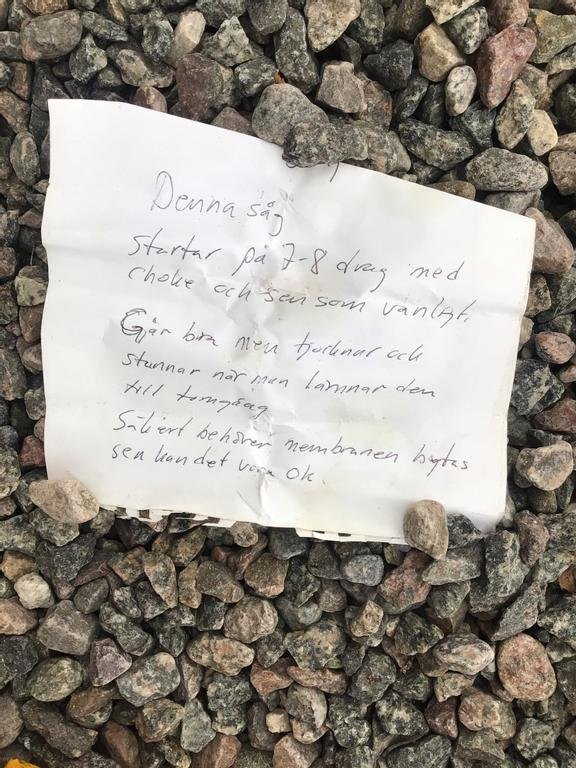 Denna såg
Startar på 7-8 drag med
choke och sen som vanligt.
Går bra men tjocknar och
stannar när man lämnar den
till tomgång
Säkert behöver membranen bytas
sen kan det vara ok.